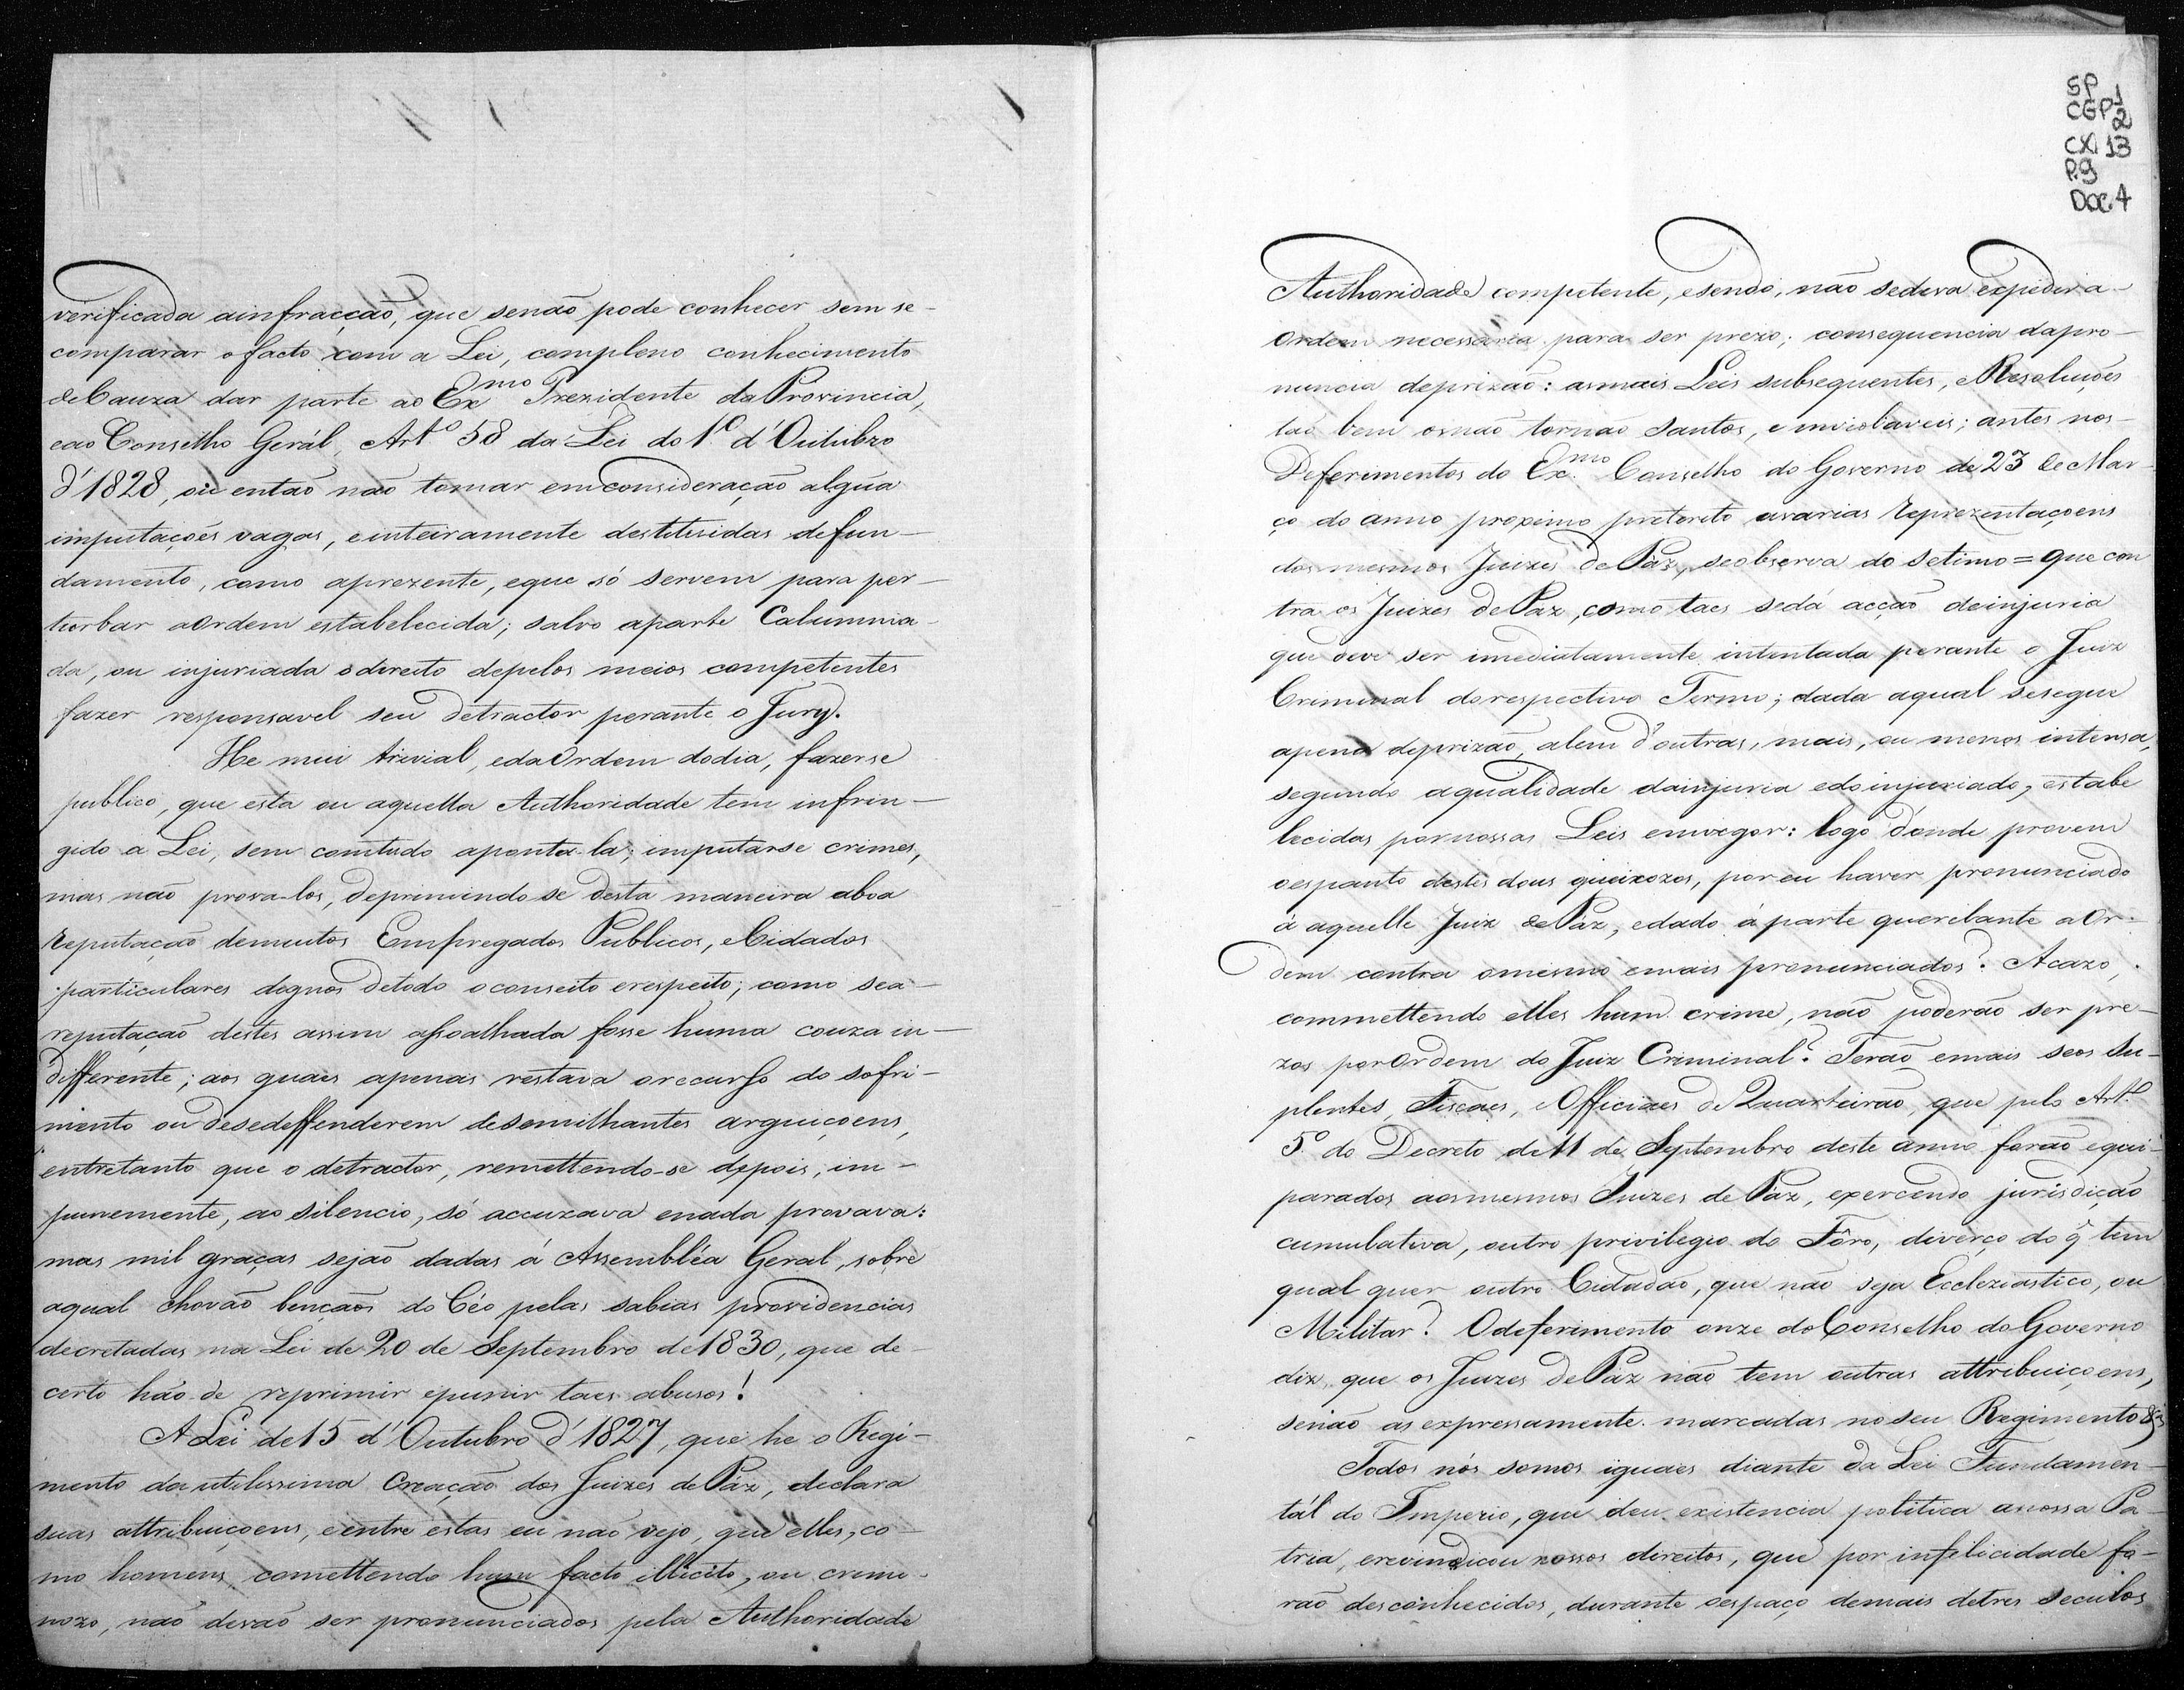 verificada ainfracção, que senão pode conhecer sem se-
comparar ofacto com a Lei, compleno conhecimento
deCauza dar parte ao Exmo Prezidente daProvincia,
eao Conselho Gerál, Arto 58 da Lei do 1o d'Outubro
d'1828, ou então não tomar emconsideração algũa
imputações vagas, einteiramente destituidas defun-
damento, como aprezente, eque só servem para per-
turbar aOrdem estabelecida; salvo aparte Calumnia-
da, ou injuriada odireito depelos meios competentes
fazer responsavel seu detractor perante o Jury.
He mui trivial, edaOrdem dodia, fazerse
publico, que esta ou aquella Authoridade tem infrin-
gido a Lei, sem comtudo aponta-la; imputarse crimes,
mas não prova-los, deprimindo se desta maneira aboa
reputação demuitos Empregados Publicos, eCidados
particulares dignos detodo oconseito erespeito; como sea-
reputação destes assim assoalhada fosse huma couza in-
differente; aos quaes apenas restava orecurso do sofri-
mento ou desedeffenderem desemilhantes arguiçoens,
entretanto que o detractor, remettendo-se depois, im-
punemente, ao silencio, só accuzava enada provava:
mas mil graças sejão dadas á Assembléa Geral, sobre
aqual chovão bençãos do Céo pelas sabias providencias
decretadas na Lei de 20 de Septembro de 1830, que de-
certo hão de reprimir epunir taes abusos!
A Lei de 15 d'Outubro d'1827, que he o Regi-
mento da utilissima Creação dos Juizes de Páz, declara
suas attribuiçoens, eentre estas eu não vejo, que elles, co-
mo homens, comettendo hum facto illicito, ou crimi-
nozo, não devão ser pronunciados pela Authoridade
SP 1
CGP 2
CX. 13
P.9
DOC.4
Authoridade competente, esendo, não sedeva expedir a-
Ordem necessaria para ser prezo; consequencia dapro-
nuncia deprizão: asmais Leis subsequentes, eResoluções
tão bem osnão tornão Santos, e inviolaveis; antes nos-
Deferimentos do Exmo Conselho do Governo de 23 de Mar-
ço do anno proximo preterito avarias reprezentaçoens
dos mesmos Juizes de Páz, seobserva do Setimo = que con
tra os Juizes dePaz, como taes sedá acção deinjuria
que deve ser imediatamente intentada perante o Juiz
Criminal dorespectivo Termo; dada aqual sesegue
apena deprizão, alem d'outras, mais, ou menos intensa,
segundo aqualidade dainjuria edoinjuriado, estabe
lecidas pornossas Leis emvigor: logo d'onde provem
oespanto destes dous queixozos, por eu haver pronunciado
á aquelle Juiz dePáz, edado á parte querelante aOr-
dem contra omesmo emais pronunciados? Acazo,
commettendo elles hum crime, não poderão ser pre-
zos porOrdem do Juiz Criminal? Terão emais seos Su-
plentes, Fiscaes, eOfficiaes de Quarteirão, que pelo Arto
5o do Decreto de 11 de Septembro deste anno forão equi-
parados aosmesmos Juizes de Páz, exercendo jurisdição
cumulativa, outro privilegio do Fôro, diverço do q̃ tem
qual quer outro Cidadão, que não seja Ecclesiastico, ou
Militar? Odeferimento onze doConselho doGoverno
diz, que os Juizes dePáz não tem outras attribuiçoens,
senão as expressamente marcadas no seu Regimento &ª
Todos nós somos iguaes diante da Lei Fundamen-
tál do Imperio, que deu existencia politica anossa Pa-
tria, erevindicou nossos direitos, que por infelicidade fo-
rão desconhecidos, durante oespaço demais detres Seculos